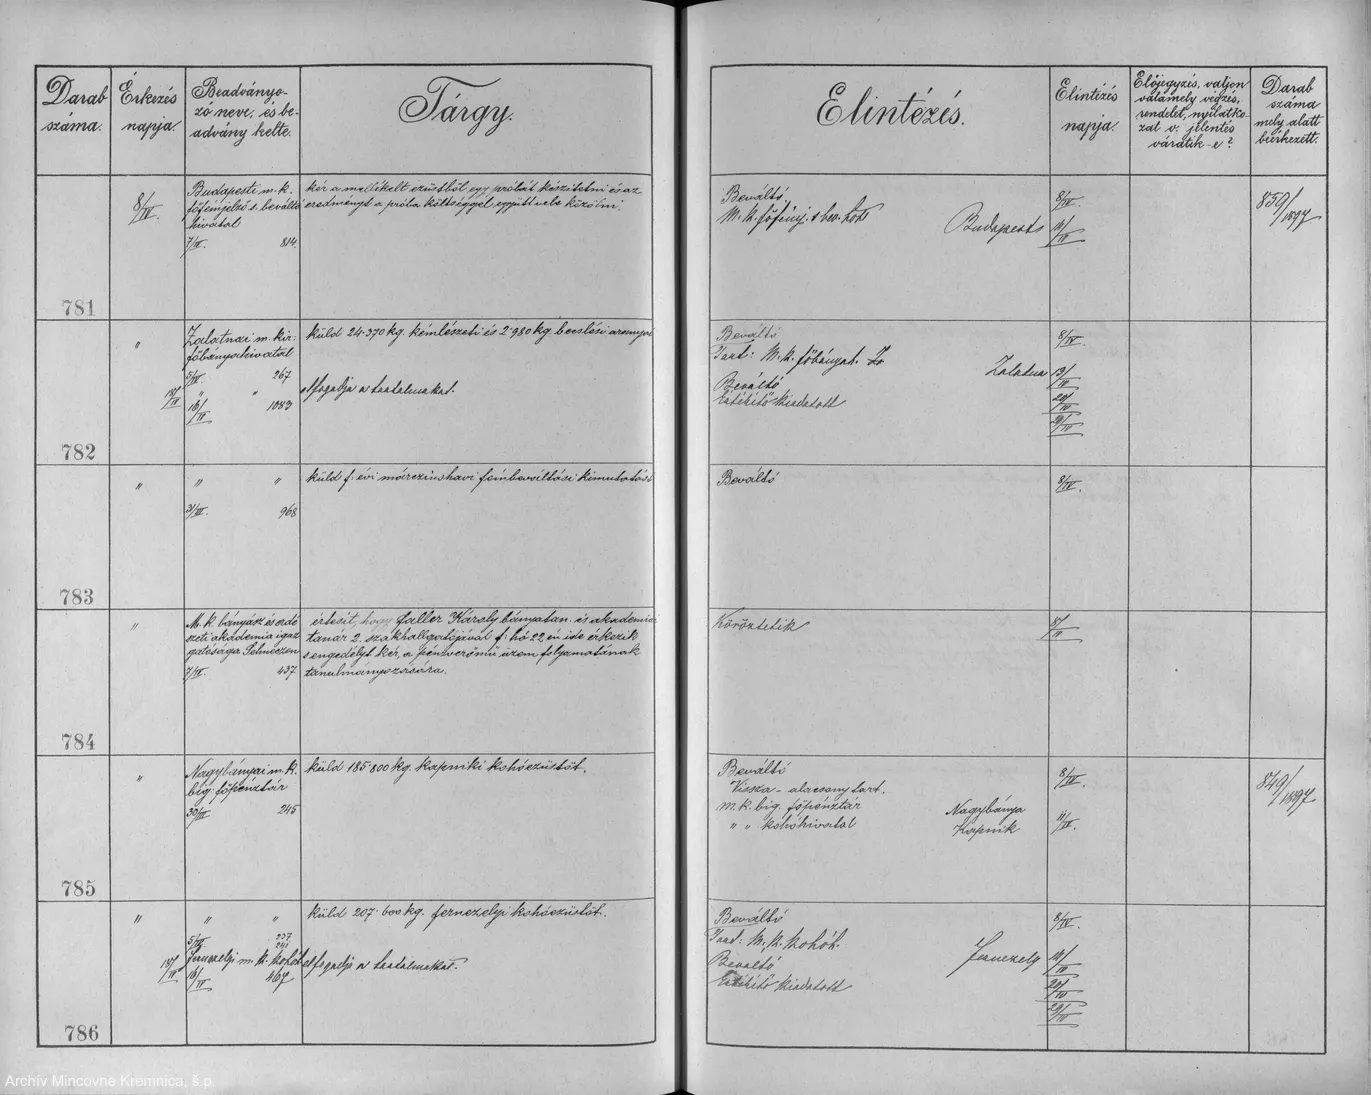 Darab száma.
Érkezés napja.
Beadványo-
zó neve, és be-
advány kelte.
Tárgy.
Elintézés.
Elintézés napja.
Előjegyzés, valjon
valamely végzés,
rendelet, nyilatko-
zat v. jelentés
váratik-e?
Darab
száma
mely alatt
beérkezett.
781
8/IV.
Budapesti m. k.
főfémjelző s beváltó
hivatal
7/IV. 814.
kér a mellékelt ezüstből egy próbát készitetni és az
eredményt a próba költséggel együtt vele közölni.
Beváltó
M. k. főfémj. s bev. hiv.
Budapest
8/IV.
859/1897
782
"
Zalatnai m. kir.
főbányahivatal
5/IV. 267
18/IV " "
16/IV 1043
küld 24.370 kg. kémlészeti és 2.980 kg. becslési aranyat
elfogadja a tartalmakat.
Beváltó
Tart: M. k. főbányah.
Zalatna
Beváltó
Értékítő kiadatott
8/IV.
13/IV
20/IV
783
" " "
3/IV. 968
küld f. évi márczius havi fémbeváltási kimutatást
Beváltó
8/IV.
784
"
M. k. bányász és erdé
szeti akadémia igaz
gatósága Selmeczen
7/IV. 437
értesit, hogy Faller Károly bányatan. is akademiai
tanár 2. szakhallgatójával f. hó 22. én ide érkezik
s engedélyt kér, a pénzverőmű üzem folyamatának
tanulmányozására.
Köröztetik
785
"
Nagybányai m. k.
big. főpénztár
30/III 245
küld 185.800 kg. kapniki kohóezüstöt.
Beváltó
Vissza - alacsony tart.
m. k. big. főpénztár Nagybánya
" " kohóhivatal Kapnik
8/IV.
11/IV.
849/1897
786
" " "
5/IV. 237
241
18/IV Fernezelyi m. k. kohóh.
16/IV 467
küld 207.600 kg. fernezelyi kohóezüstöt.
elfogadja a tartalmakat.
Beváltó
Tart: M. k. kohóh.
Fernezely
Beváltó
Értékítő kiadatott
8/IV.
20/IV
29/IV
Archív Mincovne Kremnica, š.p.